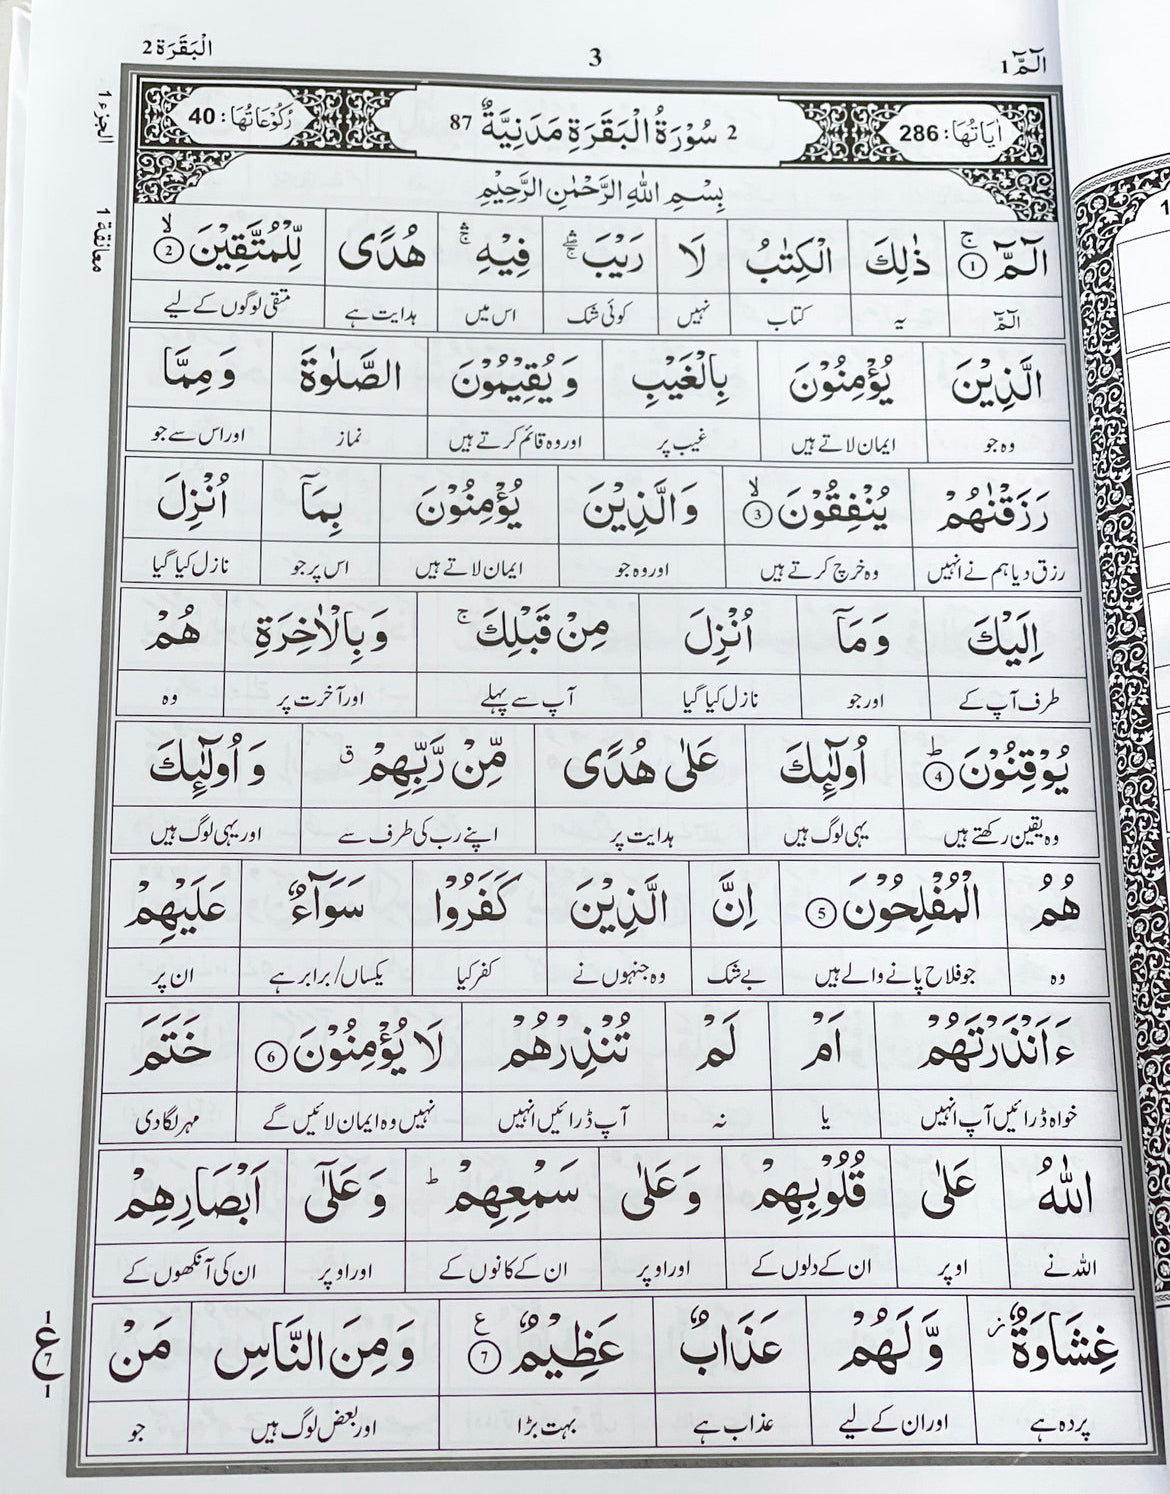 الٓمّٓ 1
3
اَلْبَقَرَة 2
الجزء 1
معانقة 1
اٰیَاتُهَا: 286
2 سُوْرَةُ الْبَقَرَةِ مَدَنِیَّةٌ 87
رُكُوْعَاتُهَا: 40
بِسْمِ اللهِ الرَّحْمٰنِ الرَّحِیْمِ
الٓمّٓ ۚ ① ذٰلِكَ الْكِتٰبُ لَا رَیْبَ ۛۖۚ فِیْهِ ۛۚ هُدًی لِّلْمُتَّقِیْنَ ۙ ②
الٓمّٓ یہ کتاب نہیں کوئی شک اس میں ہدایت ہے متقی لوگوں کے لیے
الَّذِیْنَ یُؤْمِنُوْنَ بِالْغَیْبِ وَ یُقِیْمُوْنَ الصَّلٰوةَ وَ مِمَّا
وہ جو ایمان لاتے ہیں غیب پر اور وہ قائم کرتے ہیں نماز اور اس سے جو
رَزَقْنٰهُمْ یُنْفِقُوْنَ ۙ ③ وَ الَّذِیْنَ یُؤْمِنُوْنَ بِمَاۤ اُنْزِلَ
رزق دیا ہم نے انہیں وہ خرچ کرتے ہیں اور وہ جو ایمان لاتے ہیں اس پر جو نازل کیا گیا
اِلَیْكَ وَ مَاۤ اُنْزِلَ مِنْ قَبْلِكَ ۚ وَ بِالْاٰخِرَةِ هُمْ
طرف آپ کے اور جو نازل کیا گیا آپ سے پہلے اور آخرت پر وہ
یُوْقِنُوْنَ ؕ ④ اُولٰٓىِٕكَ عَلٰی هُدًی مِّنْ رَّبِّهِمْ ۗ وَ اُولٰٓىِٕكَ
وہ یقین رکھتے ہیں یہی لوگ ہیں ہدایت پر اپنے رب کی طرف سے اور یہی لوگ ہیں
هُمُ الْمُفْلِحُوْنَ ⑤ اِنَّ الَّذِیْنَ كَفَرُوْا سَوَآءٌ عَلَیْهِمْ
وہ جو فلاح پانے والے ہیں بے شک وہ جنہوں نے کفر کیا یکساں/برابر ہے ان پر
ءَاَنْذَرْتَهُمْ اَمْ لَمْ تُنْذِرْهُمْ لَا یُؤْمِنُوْنَ ⑥ خَتَمَ
خواہ ڈرائیں آپ انہیں یا نہ آپ ڈرائیں انہیں نہیں وہ ایمان لائیں گے مہر لگا دی
اللهُ عَلٰی قُلُوْبِهِمْ وَ عَلٰی سَمْعِهِمْ ؕ وَ عَلٰۤی اَبْصَارِهِمْ
اللہ نے اوپر ان کے دلوں کے اور اوپر ان کے کانوں کے اور اوپر ان کی آنکھوں کے
غِشَاوَةٌ ؗ وَّ لَهُمْ عَذَابٌ عَظِیْمٌ ع ⑦ وَ مِنَ النَّاسِ مَنْ
پردہ ہے اور ان کے لیے عذاب ہے بہت بڑا اور بعض لوگ ہیں جو
1 ع 7 1